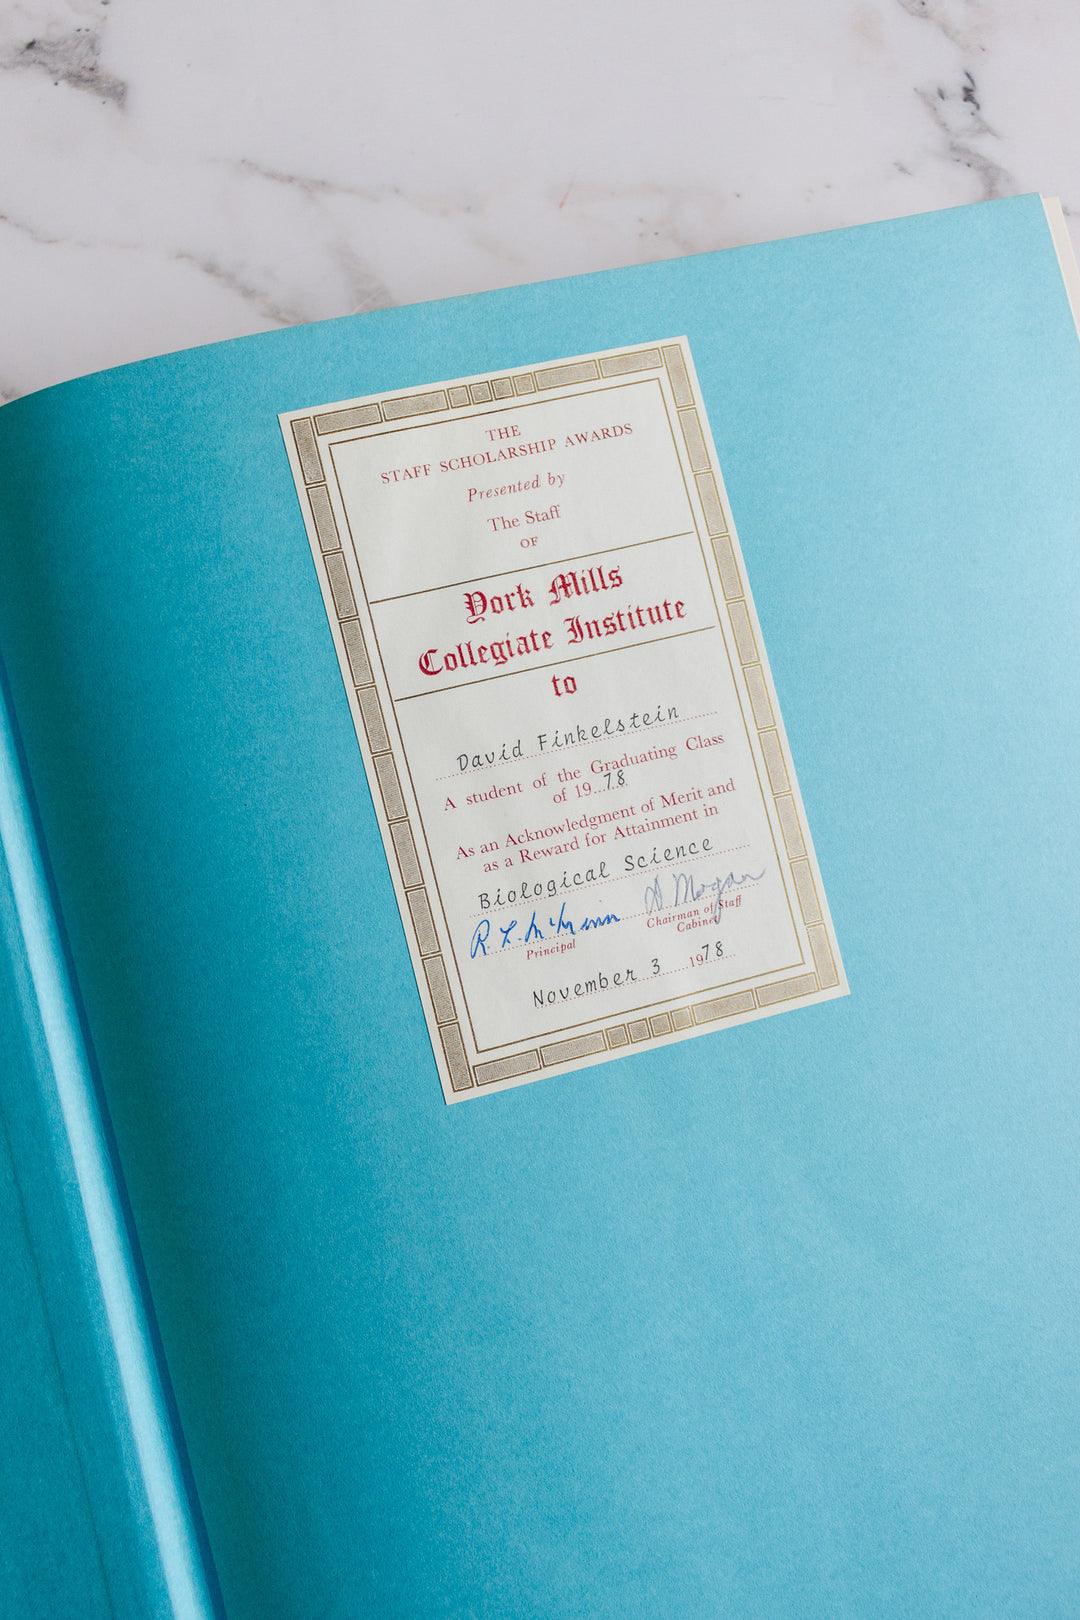 THE
STAFF SCHOLARSHIP AWARDS
Presented by
The Staff
OF
York Mills
Collegiate Institute
to
David Finkelstein
A student of the Graduating Class
of 19..78
As an Acknowledgment of Merit and
as a Reward for Attainment in
Biological Science
R. L. McKinnon
Principal
D. Mogan
Chairman of Staff
Cabinet
November 3 1978